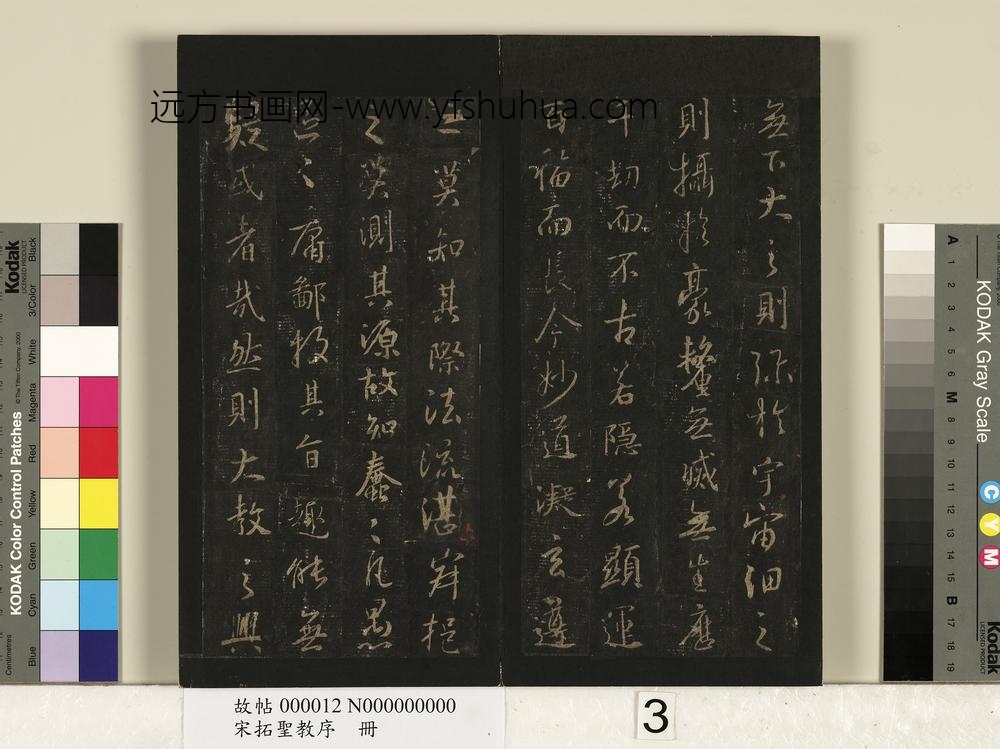 远方书画网-www.yfshuhua.com
無下大之則弥於宇宙細之
則攝於豪釐無滅無生歷
千劫而不古若隱若顯運
百福而長今妙道凝玄遵
之莫知其際法流湛寂挹
之莫測其源故知蠢々凡愚
區々庸鄙投其旨趣能無
疑或者哉然則大教之興
故帖 000012 N000000000
宋拓聖教序 冊
3
Kodak
LICENSED PRODUCT
KODAK Color Control Patches
© The Tiffen Company, 2000
Centimetres
Blue
Cyan
Green
Yellow
Red
Magenta
White
3/Color
Black
KODAK Gray Scale
A 1 2 3 4 5 6 M 8 9 10 11 12 13 14 15 B 17 18 19
C
Y
M
Kodak
LICENSED PRODUCT